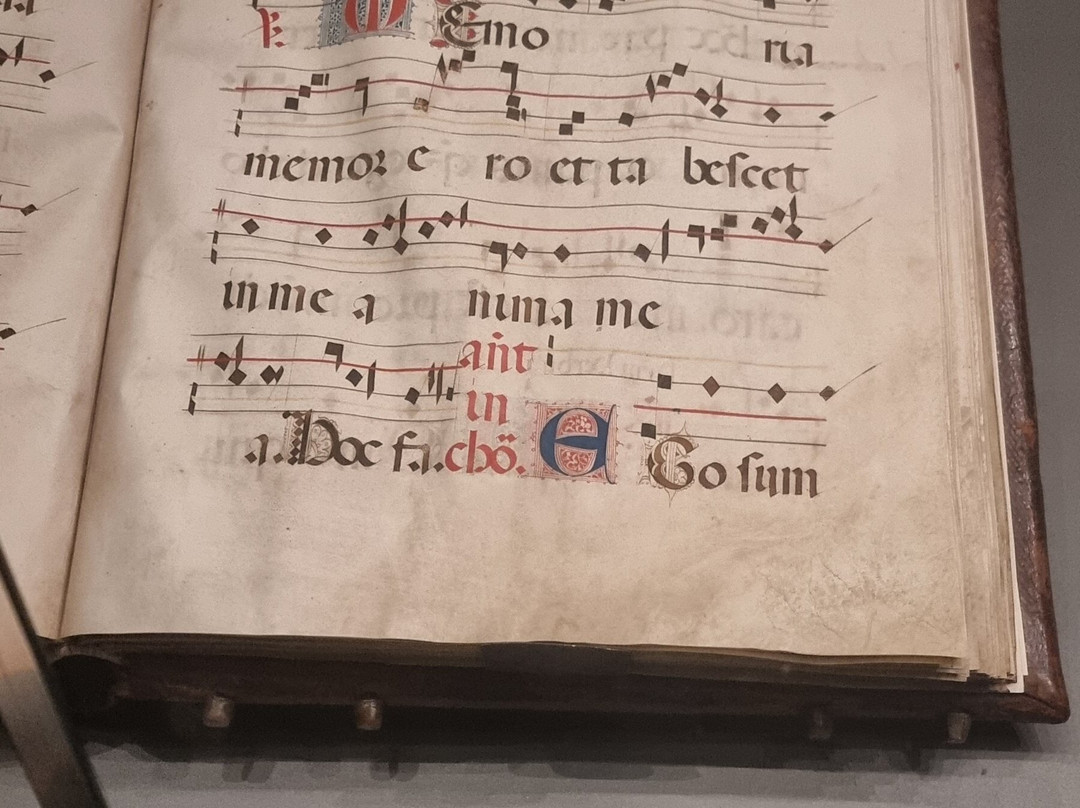 ℟. MEmo ria
memor e ro et ta bescet
in me a nima me
añt
in
a. Hoc fa. chō. E Go sum